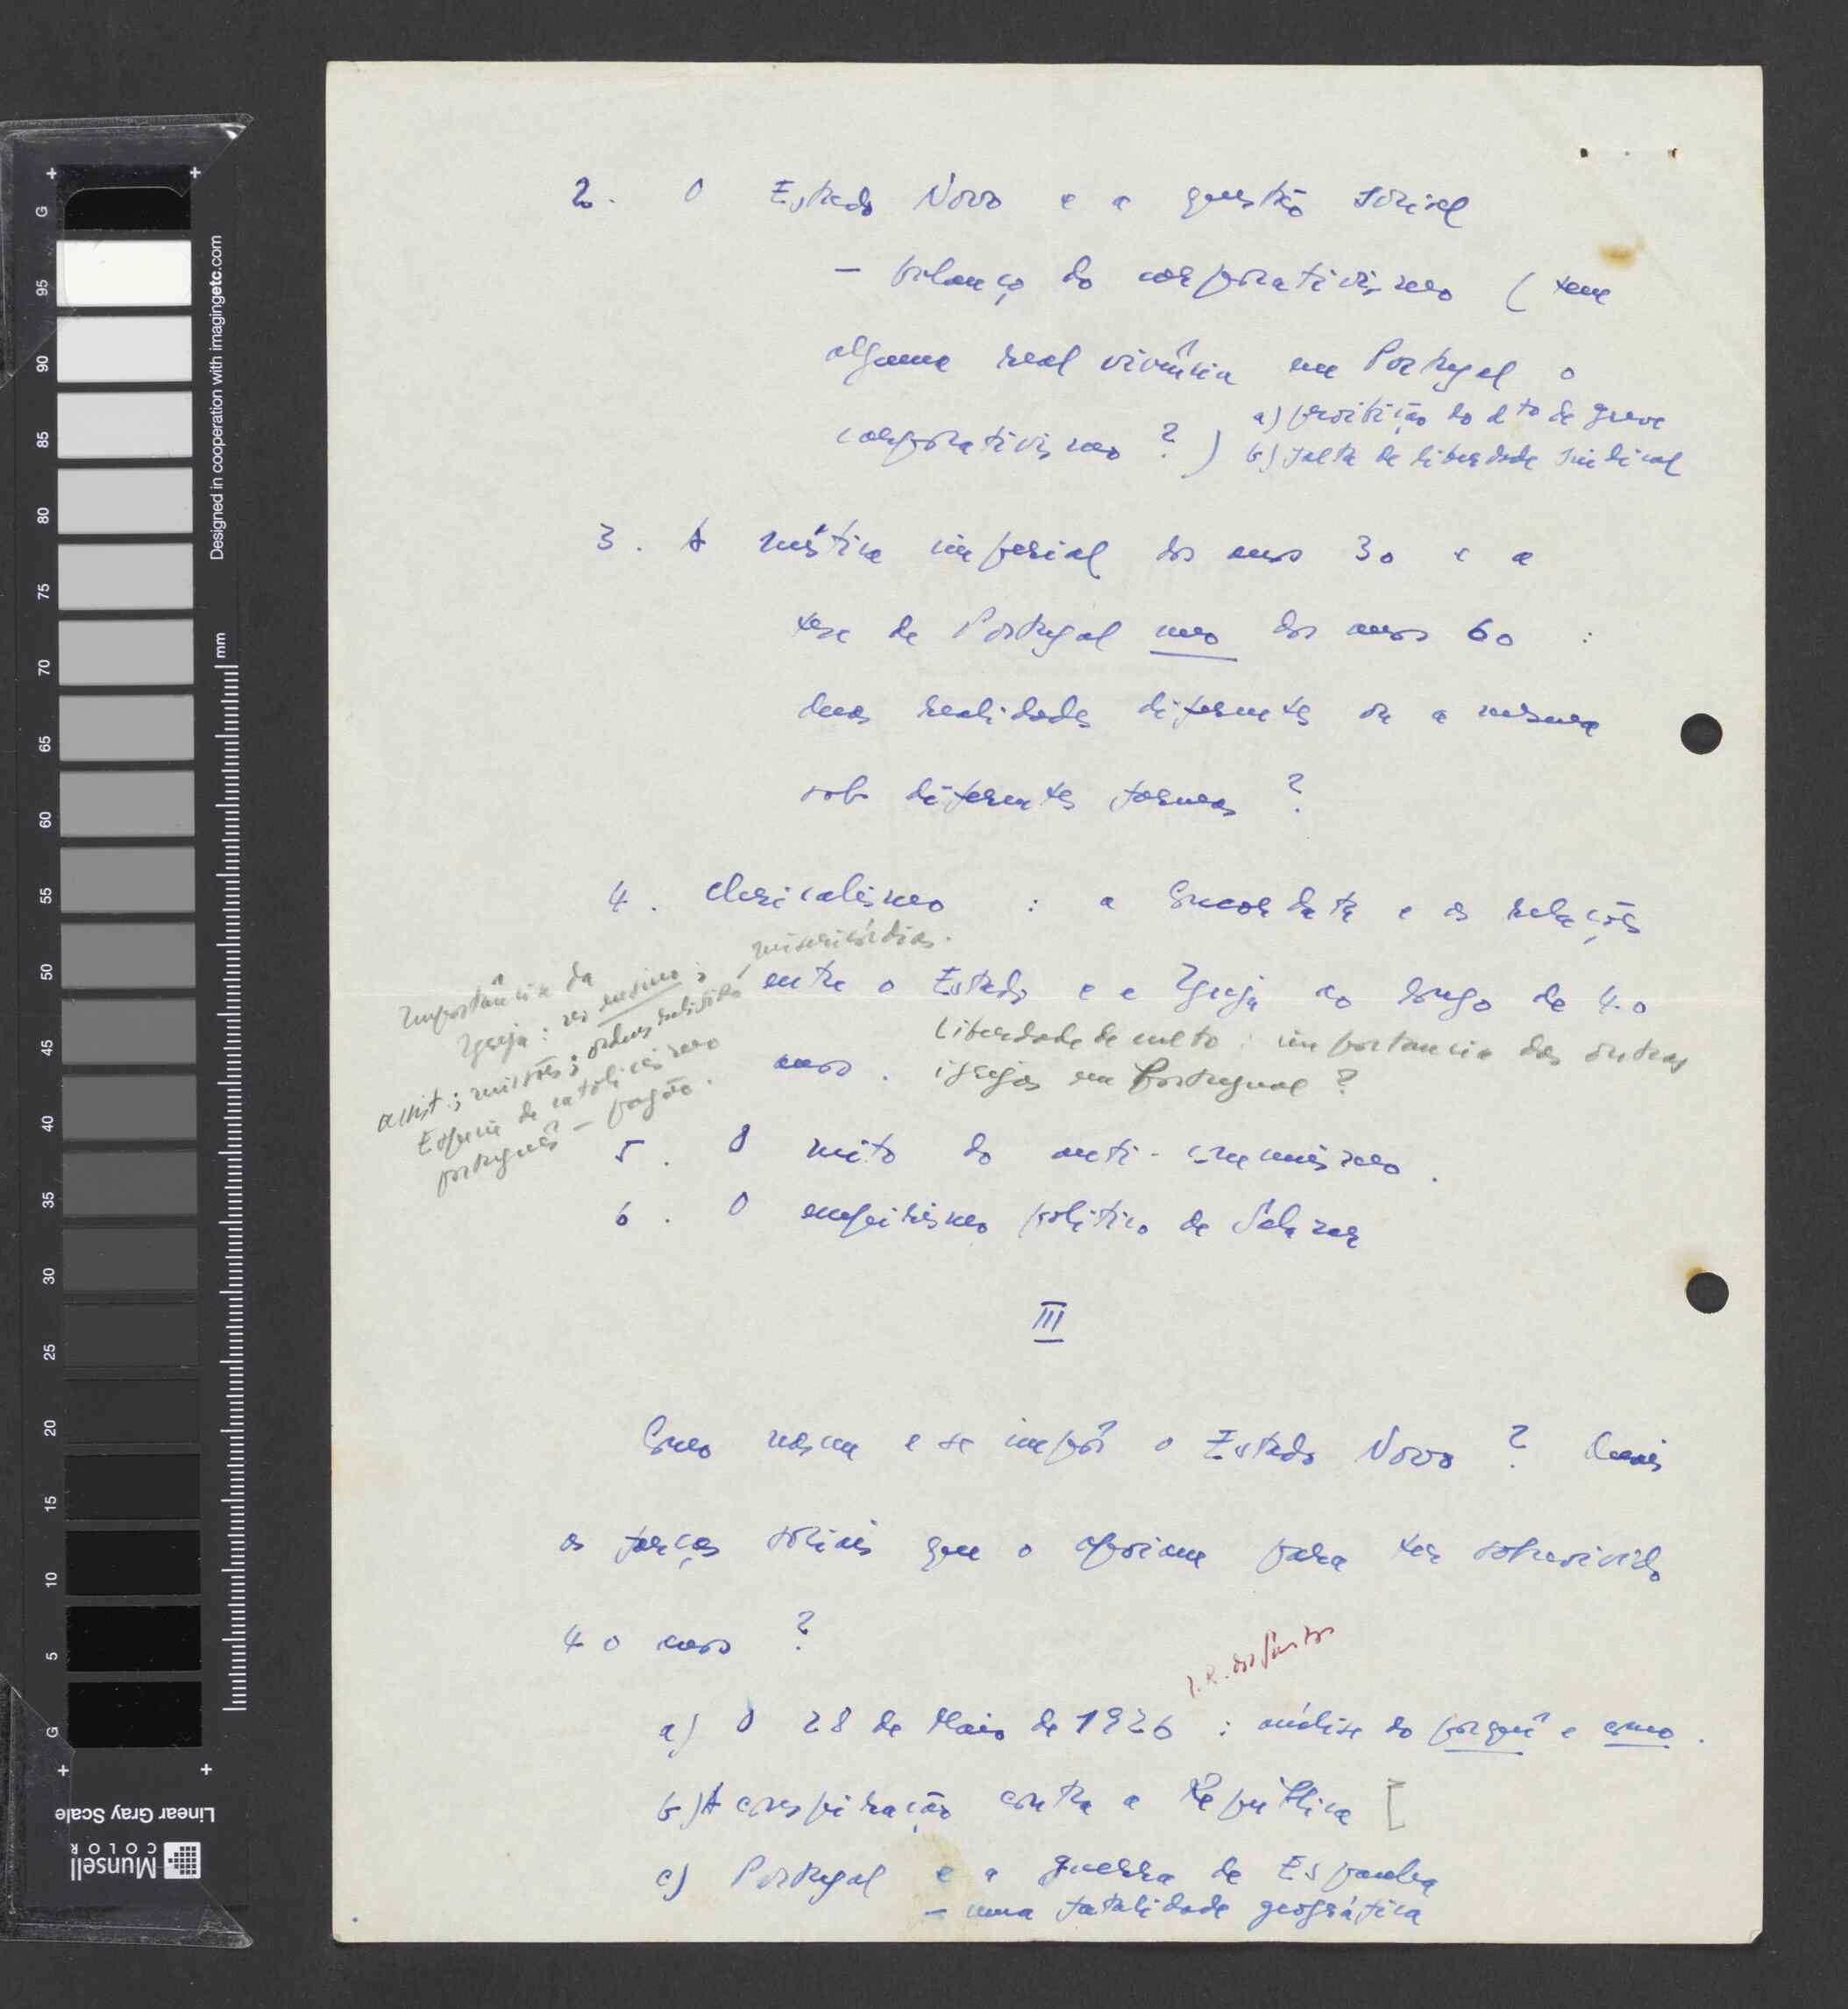 2. O Estado Novo e a questão social
– balanço do corporativismo (teve
alguma real vivência em Portugal o
corporativismo ?)
a) proibição do dto de greve
b) falta de liberdade sindical
3. A mística imperial dos anos 30 e a
tese de Portugal uno dos anos 60 :
duas realidades diferentes ou a mesma
sob diferentes formas ?
4. Clericalismo : a Concordata e as relações
entre o Estado e a Igreja ao longo de 40
anos.
Importância da
Igreja : no ensino ;
assist ; missões ; ordens ; misericórdias.
Espécie de catolicismo
português – pagão.
Liberdade de culto : importancia das outras
igrejas em Portugual ?
5. O mito do anti-comunismo.
6. O empirismo político de Salazar
III
Como nasceu e se impôs o Estado Novo ? Quais
as forças sociais que o apoiam para ter sobrevivido
40 anos ?
a) O 28 de Maio de 1926 : análise do porquê e como.
b) A conspiração contra a República [
c) Portugal e a guerra de Espanha
– uma fatalidade geográfica
G 95 90 85 80 75 70 65 60 55 50 45 40 35 30 25 20 15 10 5 G
Designed in cooperation with imagingetc.com
mm
Linear Gray Scale
Munsell
COLOR